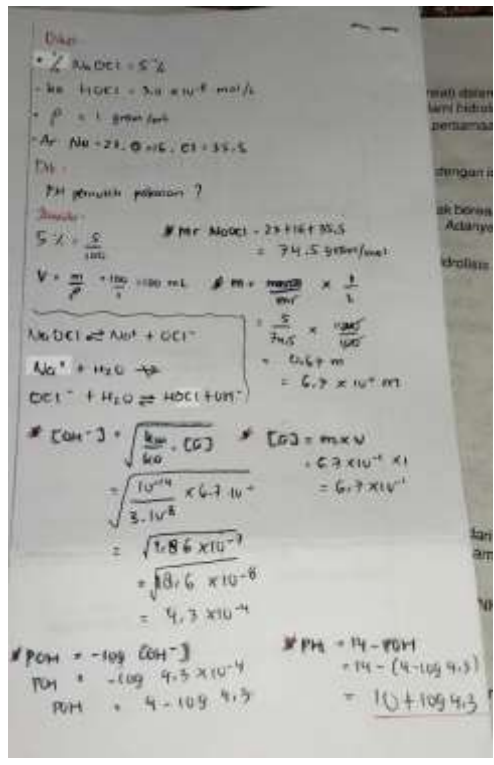 Diket :
• % NaOCl = 5 %
- ka HOCl = 3.0 x 10⁻⁸ mol/L
• ρ = 1 gram/mL
- Ar Na = 23, O = 16, Cl = 35.5
Dit :
PH pemutih pakaian ?
5 % = 5/100
* Mr NaOCl = 23 + 16 + 35.5
= 74.5 gram/mol
V = m/ρ = 100/1 = 100 mL
* m = massa/mr x 1/L
= 5/74.5 x 1000/100
= 0.67 m
= 6.7 x 10⁻¹ m
NaOCl ⇌ Na⁺ + OCl⁻
Na⁺ + H₂O
OCl⁻ + H₂O ⇌ HOCl + OH⁻
* [OH⁻] = √kw/ka . [G]
= √10⁻¹⁴/3.10⁻⁸ x 6.7 10⁻
= √1.86 x 10⁻⁷
= √18,6 x 10⁻⁸
= 4,3 x 10⁻⁴
* [G] = m x v
= 6.7 x 10⁻¹ x 1
= 6.7 x 10⁻¹
* POH = -log [OH⁻]
POH = -log 4.3 x 10⁻⁴
POH = 4 - log 4,3
* PH = 14 - POH
= 14 - (4 - log 4.3)
= 10 + log 4,3
dengan
Adanya
idrolisis
dari